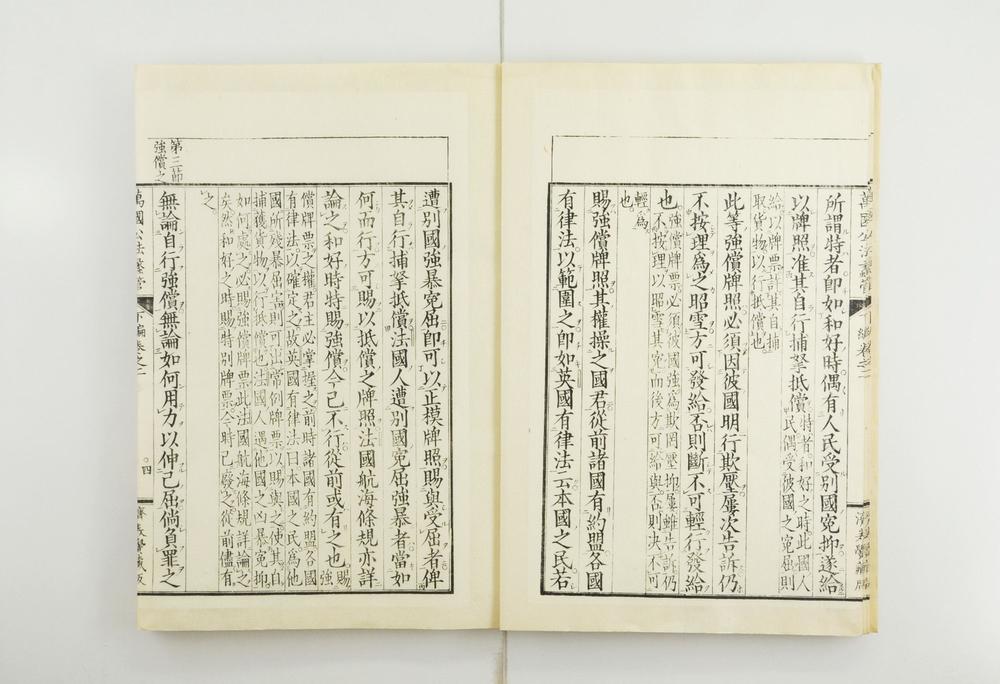 萬國公法蠡管
下編卷之二
所謂特者卽如和好時偶有人民受別國寃抑遂給
以牌照准其自行捕拏抵償
特者和好之時此國人
民偶受彼國之寃屈則
給以牌票許其自捕
取貨物以行抵償也
此等強償牌照必須因彼國明行欺壓屢次告訴仍
不按理爲之昭雪方可發給否則斷不可輕行發給
也
強償牌票必須彼國強爲欺罔壓抑屢雖告訴仍
不按理以昭雪其寃而後方可給與否則决不可
輕爲
也
賜強償牌照其權操之國君從前諸國有約盟各國
有律法以範圍之卽如英國有律法云本國之民若
遭別國強暴寃屈卽可以正模牌照賜與受屈者俾
其自行捕拏抵償法國人遭別國寃屈強暴者當如
何而行方可賜以抵償之牌照法國航海條規亦詳
論之和好時特賜強償今已不行從前或有之也
賜強
償牌票之權君主必掌握之前時諸國有約盟各國
有律法以確定之故英國有律法曰本國之民爲他
國所殘暴屈害則可出常例牌票以賜與之使其自
捕獲貨物以行抵償也法國人遇他國之凶暴寃抑
如何處之必賜強償牌票此法國航海條規詳論之
矣然和好之時賜特別牌票今時已廢之從前儘有
之
第三節
強償之
無論自行強償無論如何用力以伸己屈倘負罪之
萬國公法蠡管
下編卷之二
四